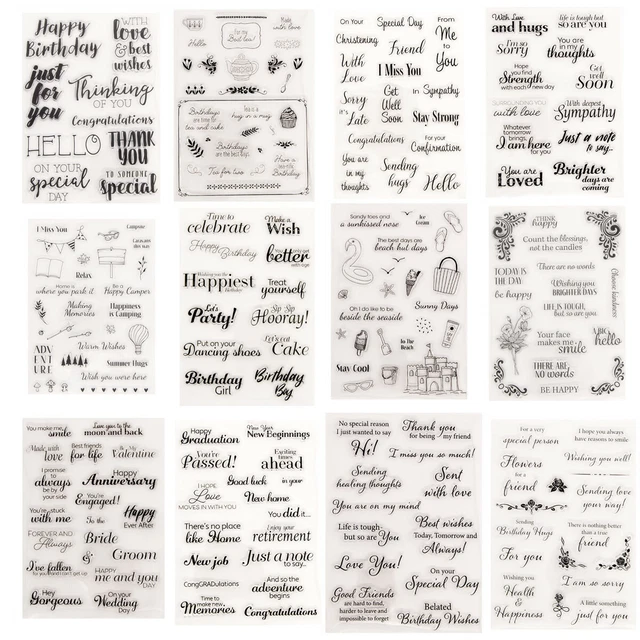 Happy
Birthday
WITH
love
& best
wishes
just
for
you
Thinking
OF YOU
Congratulations
HELLO
THANK
YOU
ON YOUR
special
DAY
TO SOMEONE
special
Hello
Made
with love
Birthdays
are time for
tea and cake
Tea is a
hug in a mug
Birthdays
are the best days
Tea for two
Have a
tea-riffic
Birthday
On Your
Christening
Special Day
From
Me
to
You
Friend
With
Love
I Miss You
Sorry
it's Late
Get
Well
Soon
In Sympathy
Stay Strong
Congratulations
For your
Confirmation
You are
in my
thoughts
Sending
hugs
Hello
With Love
and hugs
life is tough but
so are you
I'm so
Sorry
You are
in my
thoughts
Hope
you find
Strength
with each new day
Get
well
Soon
SURROUNDING YOU
with love
With deepest
Sympathy
Whatever
tomorrow
brings
I am here
for you
Just a note
to say...
You are
Loved
Brighter
days are
coming
I Miss You
Campsite
Caravans
this way
Relax
Home is
where you park it
Be a
Happy Camper
Making
Memories
Happiness
is Camping
Warm Wishes
ADV
ENT
URE
Summer Hugs
Wish you were here
Time to
celebrate
Make a
Wish
Happy Birthday
You only get
better
with age
Wishing you the
Happiest
Birthday
Treat
yourself
Let's
Party!
Sip Sip
Hooray!
Put on your
Dancing shoes
Let's eat
Cake
Birthday
Girl
Birthday
Boy
Sandy toes and
a sunkissed nose
Ice
Cream
The best days are
beach hut days
Oh I do like to be
beside the seaside
Sunny Days
In The
Beach
Stay Cool
THINK
happy
Count the blessings,
not the candles
TODAY IS
THE DAY
be happy
There are no words
Wishing you
BRIGHTER DAYS
LIFE IS TOUGH,
but so are you
Choose kindness
Your face
makes me
smile
A BIG
hello
THERE ARE
NO words
BE HAPPY
You make me
smile
Love you to the
moon and back
Made with
love
Best friends
for life
Be My
Valentine
I promise
to
always
be by
your side
Happy
Anniversary
You're
Engaged!
You're stuck
with me
To the
Happy
Ever After
FOREVER AND
Always
Bride
&
Groom
I've fallen
for you and I can't get up
HAPPY
me and you
DAY
Hey
Gorgeous
On your
Wedding
Day
Happy
Graduation
New Year
New Beginnings
You've
Passed!
Exciting
times
ahead
I HOPE
Love
MOVES IN WITH YOU
Good luck
in your
New home
You did it...
There's no place
like Home
Enjoy your
retirement
New job
Just a note
to say...
CongGRADulations
And so the
adventure
begins
Time to
make new
Memories
Congratulations
No special reason
I just wanted to say
Hi!
Thank you
for being my friend
I miss you so much!
Sending
healing thoughts
Sent
with love
You are on my mind
Life is tough-
but so are You
Best wishes
Today, Tomorrow and
Always!
Love You!
On your
Special Day
Good Friends
are hard to find,
harder to leave and
impossible to forget
Belated
Birthday Wishes
For a very
special person
I hope you always
have reasons to smile
Flowers
for a
friend
Wishing you well!
Sending love
your way!
Sending
Birthday Hugs
There is nothing better
than a true
friend
For you
Wishing you
Health
&
Happiness
I am so sorry
A little something
just for you